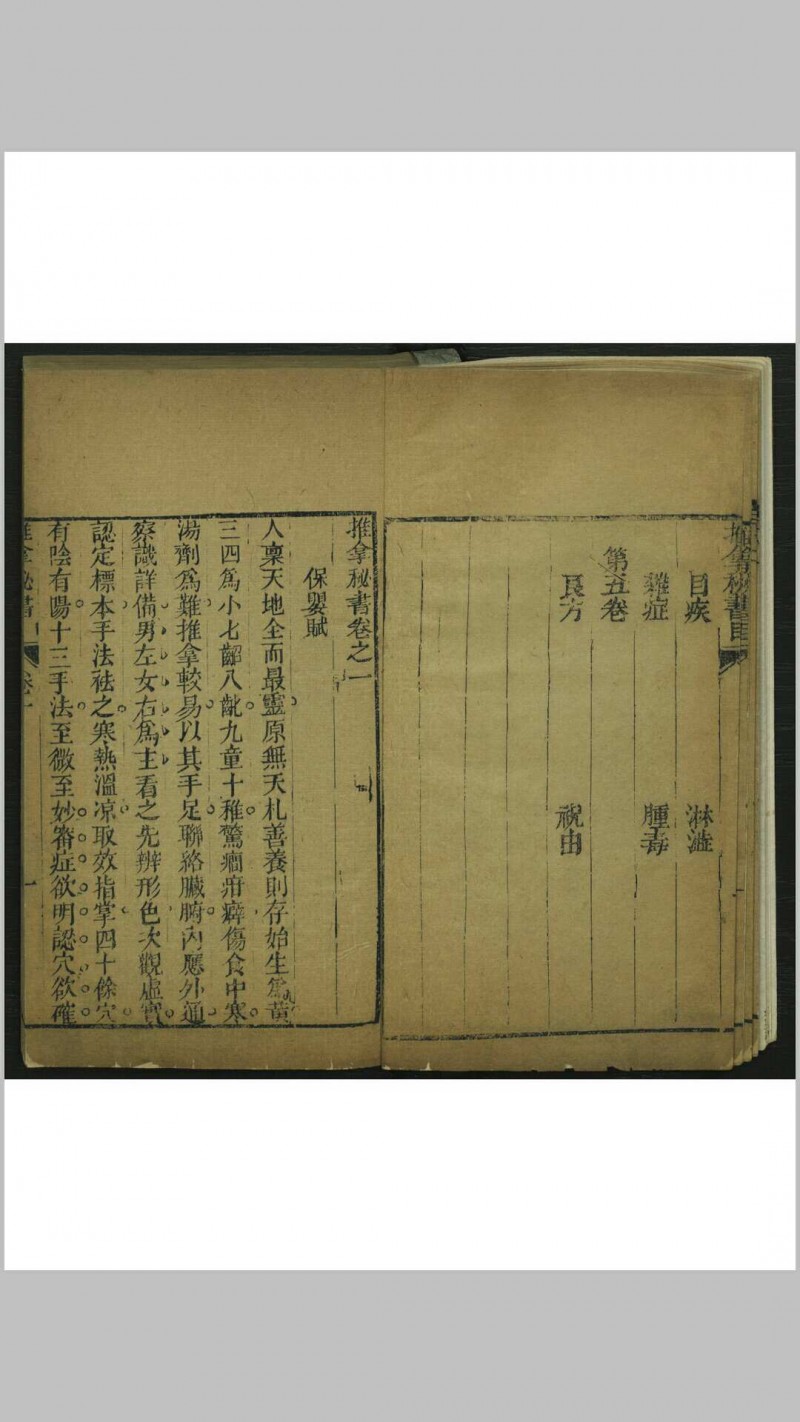 推拿秘書目
目疾 淋澁
雜症 腫毒
第五卷
良方 祝由
推拿秘書卷之一
保嬰賦
人稟天地全而最靈原無夭札善養則存始生爲黃
三四爲小七齠八齔九童十稚驚癇疳癖傷食中寒
湯劑爲難推拿較易以其手足聯絡臟腑內應外通
察識詳備男左女右爲主看之先辨形色次觀虛實
認定標本手法祛之寒熱溫凉取效指掌四十餘穴
有陰有陽十三手法至微至妙審症欲明認穴欲確
推拿秘書 卷一 一